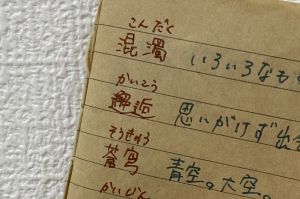 こんだく
混濁 いろいろなもの
かいこう
邂逅 思いがけず出会
そうきゅう
蒼穹 青空。大空。